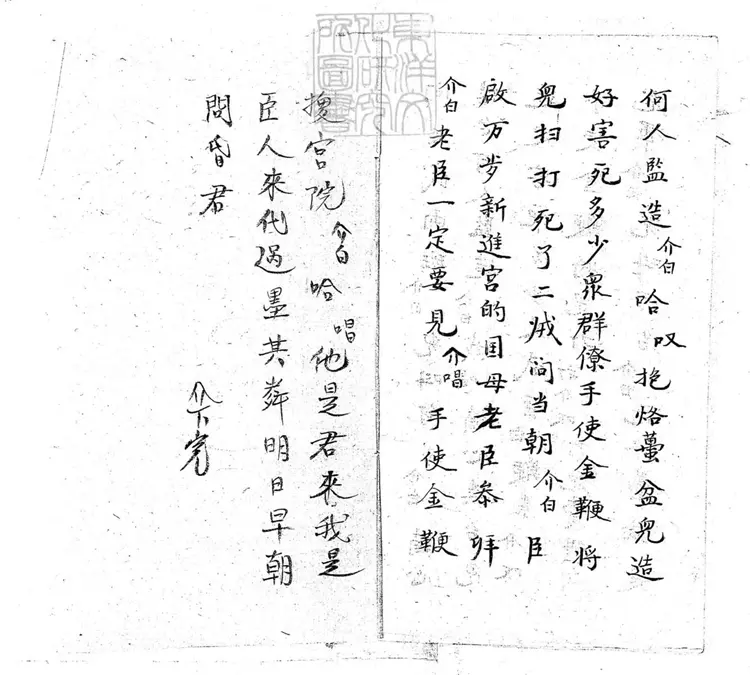 何人監造 介白 哈 叹 抱烙蠆盆皃造
好害死多少衆群僚手使金鞭將
皃扫打死了二贼问当朝 介白 臣
啟万岁新進宮的国母老臣叅拜
介白 老臣一定要見 介唱 手使金鞭
搜宮院 介白 哈 唱 他是君來我是
臣人來代过墨其 明日早朝
問昏君
介下完
東洋文化研究所圖書